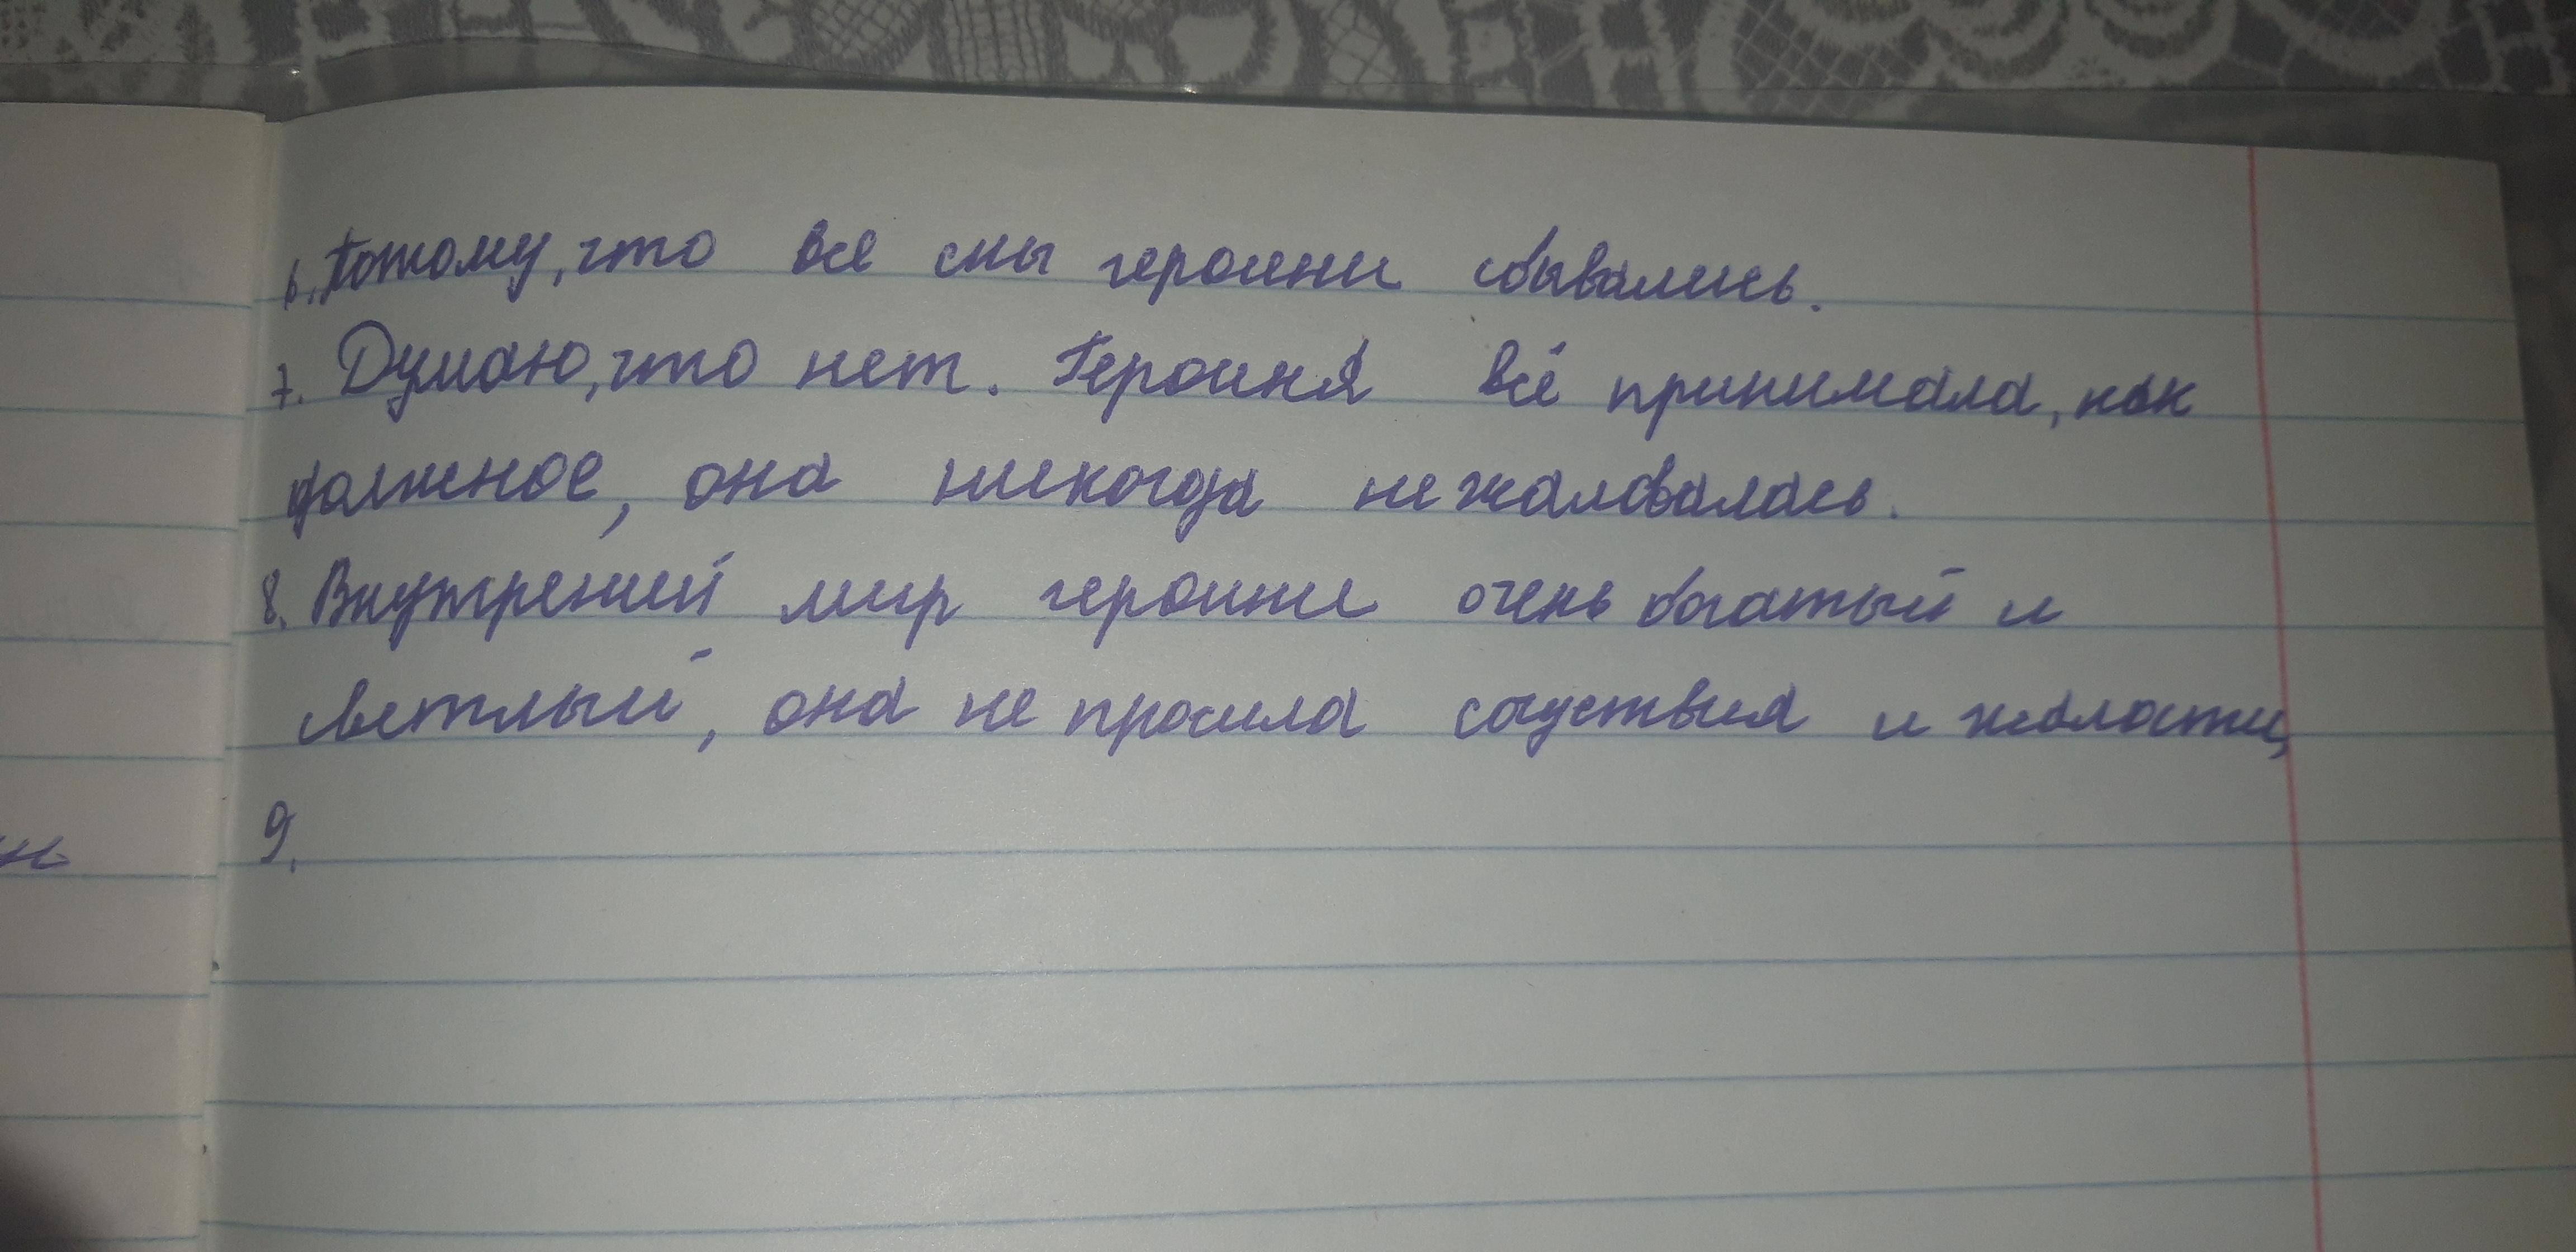 6. Потому, что все сны героини сбывались.
7. Думаю, что нет. Героиня всё принимала, как
должное, она никогда не жаловалась.
8. Внутрений мир героини очень богатый и
светлый, она не просила сочуствия и жалости,
9.